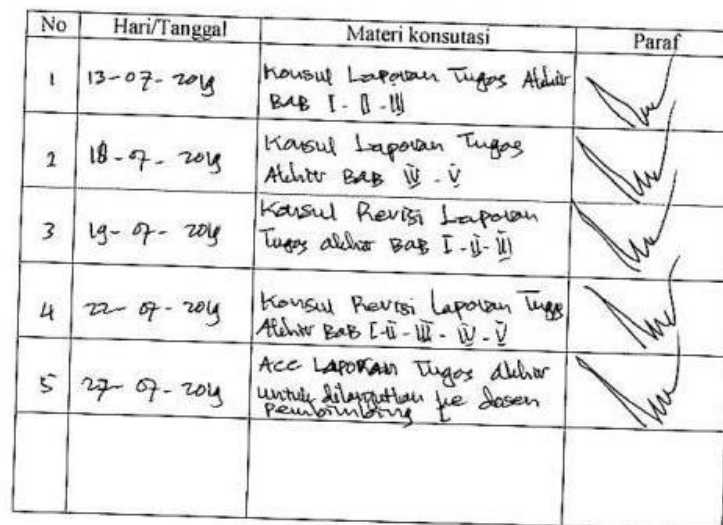 No Hari/Tanggal Materi konsutasi Paraf
1 13-07-2019 Konsul Laporan Tugas Akhir
BAB I - II - III
2 18-07-2019 Konsul Laporan Tugas
Akhir BAB IV - V
3 19-07-2019 Konsul Revisi Laporan
Tugas akhir BAB I - II - III
4 22-07-2019 Konsul Revisi Laporan Tugas
Akhir BAB I - II - III - IV - V
5 27-07-2019 Acc LAPORAN Tugas akhir
untuk dilanjutkan ke dosen
pembimbing I